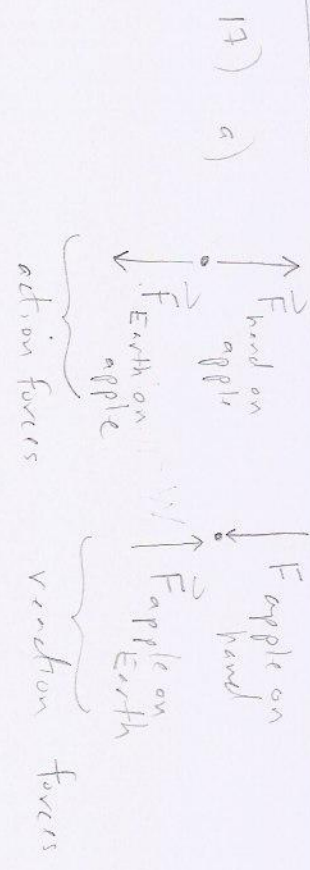 17) a)
F hand on
apple
F Earth on
apple
action forces
F apple on
hand
F apple on
Earth
reaction forces